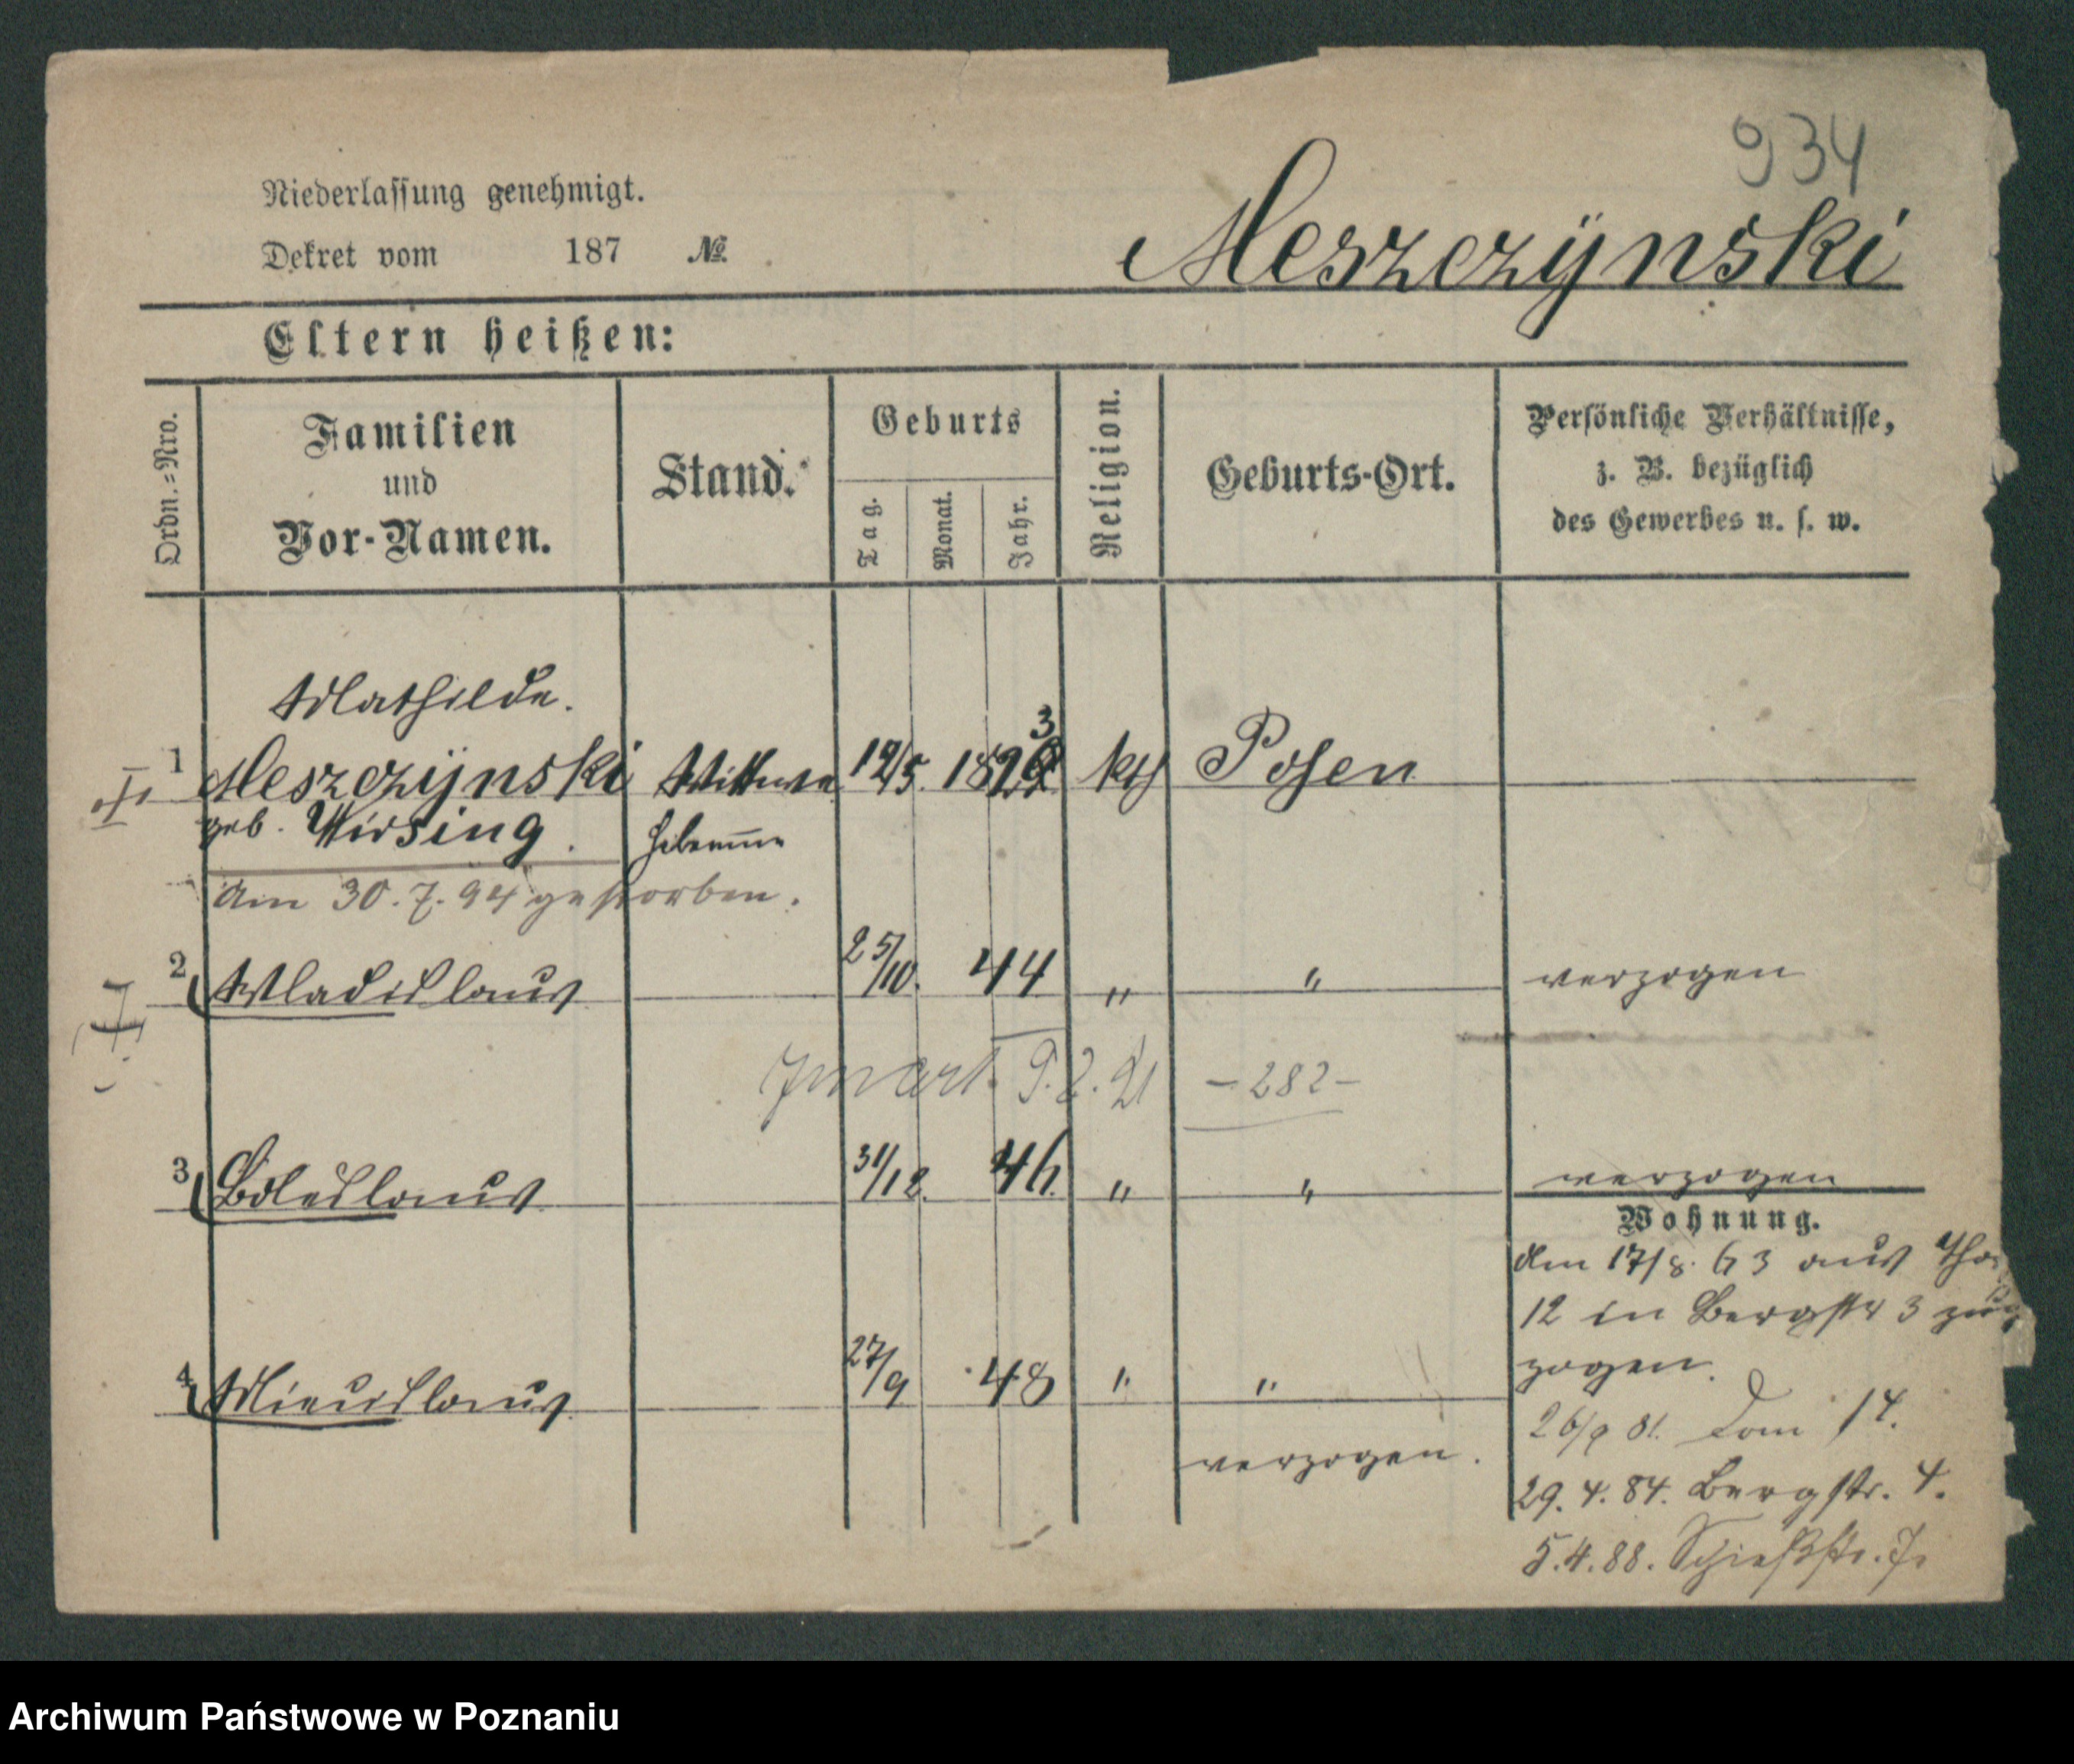 934
Niederlassung genehmigt.
Dekret vom 187 №
Meszczÿnski
Eltern heißen:
Ordn.=Nro.
Familien
und
Vor-Namen.
Stand.
Geburts
Tag.
Monat.
Jahr.
Religion.
Geburts-Ort.
Persönliche Verhältnisse,
z. B. bezüglich
des Gewerbes u. s. w.
Mathilde.
1 Meszczÿnski Wittwe 12/5. 182 3 kth Posen
geb. Wirsing. Hebamme
Am 30.7.94 gestorben.
2 Wladislaus 25/10. 44 " " verzogen
9.2.21 - 282 -
3 Boleslaus 31/12. 46. " " verzogen
Wohnung.
4 Miecislaus 27/9 48 " "
verzogen.
Am 17/8. 63 aus
12 in Bergstr 3
zogen.
26/9 81. Dom 14.
29.4.84. Bergstr. 4.
5.4.88. Schießstr. 7.
Archiwum Państwowe w Poznaniu